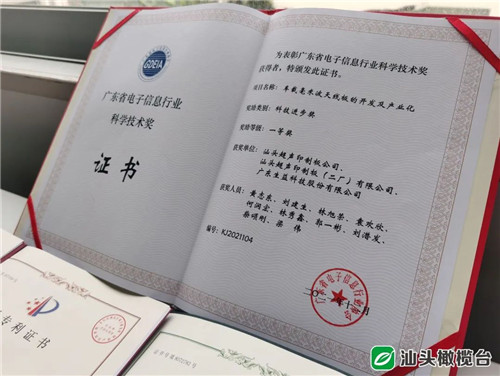 GDEIA
广东省电子信息行业
科学技术奖
证书
为表彰广东省电子信息行业科学技术奖
获得者,特颁发此证书。
项目名称:车载毫米波天线板的开发及产业化
奖励类别:科技进步奖
奖励等级:一等奖
获奖单位:汕头超声印制板公司、
汕头超声印制板(二厂)有限公司、
广东生益科技股份有限公司
获奖人员:黄志东、刘建生、林旭荣、袁欢欣、
何润宏、林秀鑫、郭一彬、刘潜发、
蔡颂刚、梁伟
编号:KJ2021104
广东省电子信息行业协会
专利证书
汕头橄榄台